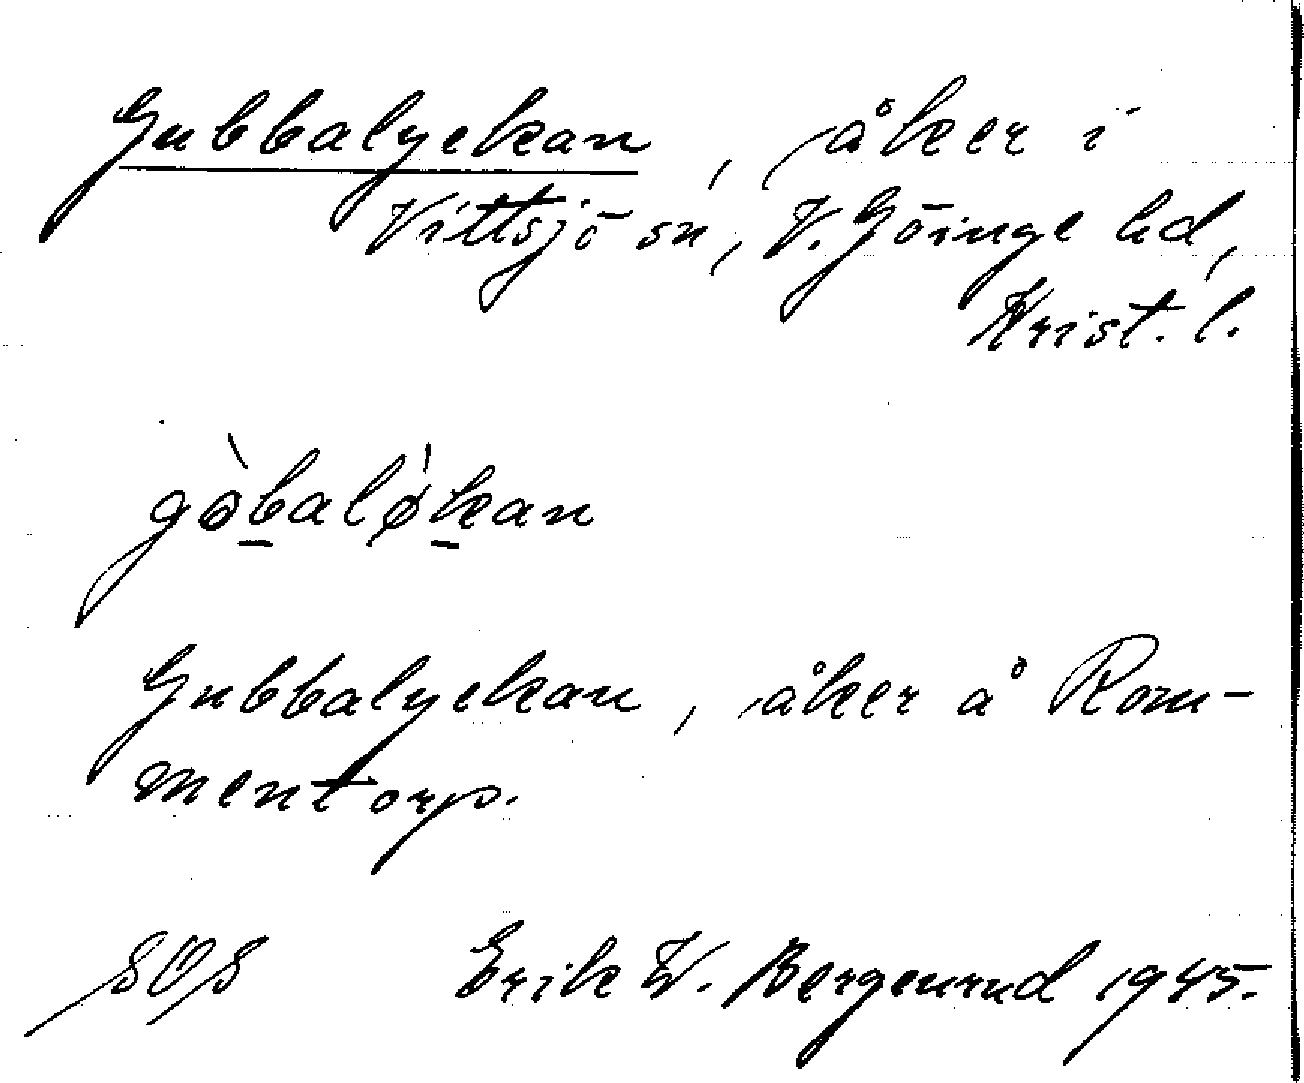 Gubbalyckan, åker i
Vittsjö sn, V. Göinge hd,
Krist. l.
gòbalǿkan
Gubbalyckan, åker å Rom-
mentorp.
SOS Erik W. Bergenrud 1945.